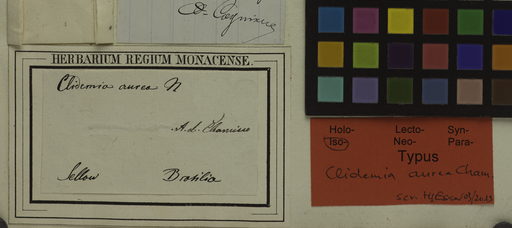 A. Cogniaux
HERBARIUM REGIUM MONACENSE.
Clidemia aurea N
A. d. Chamisso
Sellow Brasilia
Holo- Lecto- Syn-
Iso- Neo- Para-
Typus
Clidemia aurea Cham.
2013